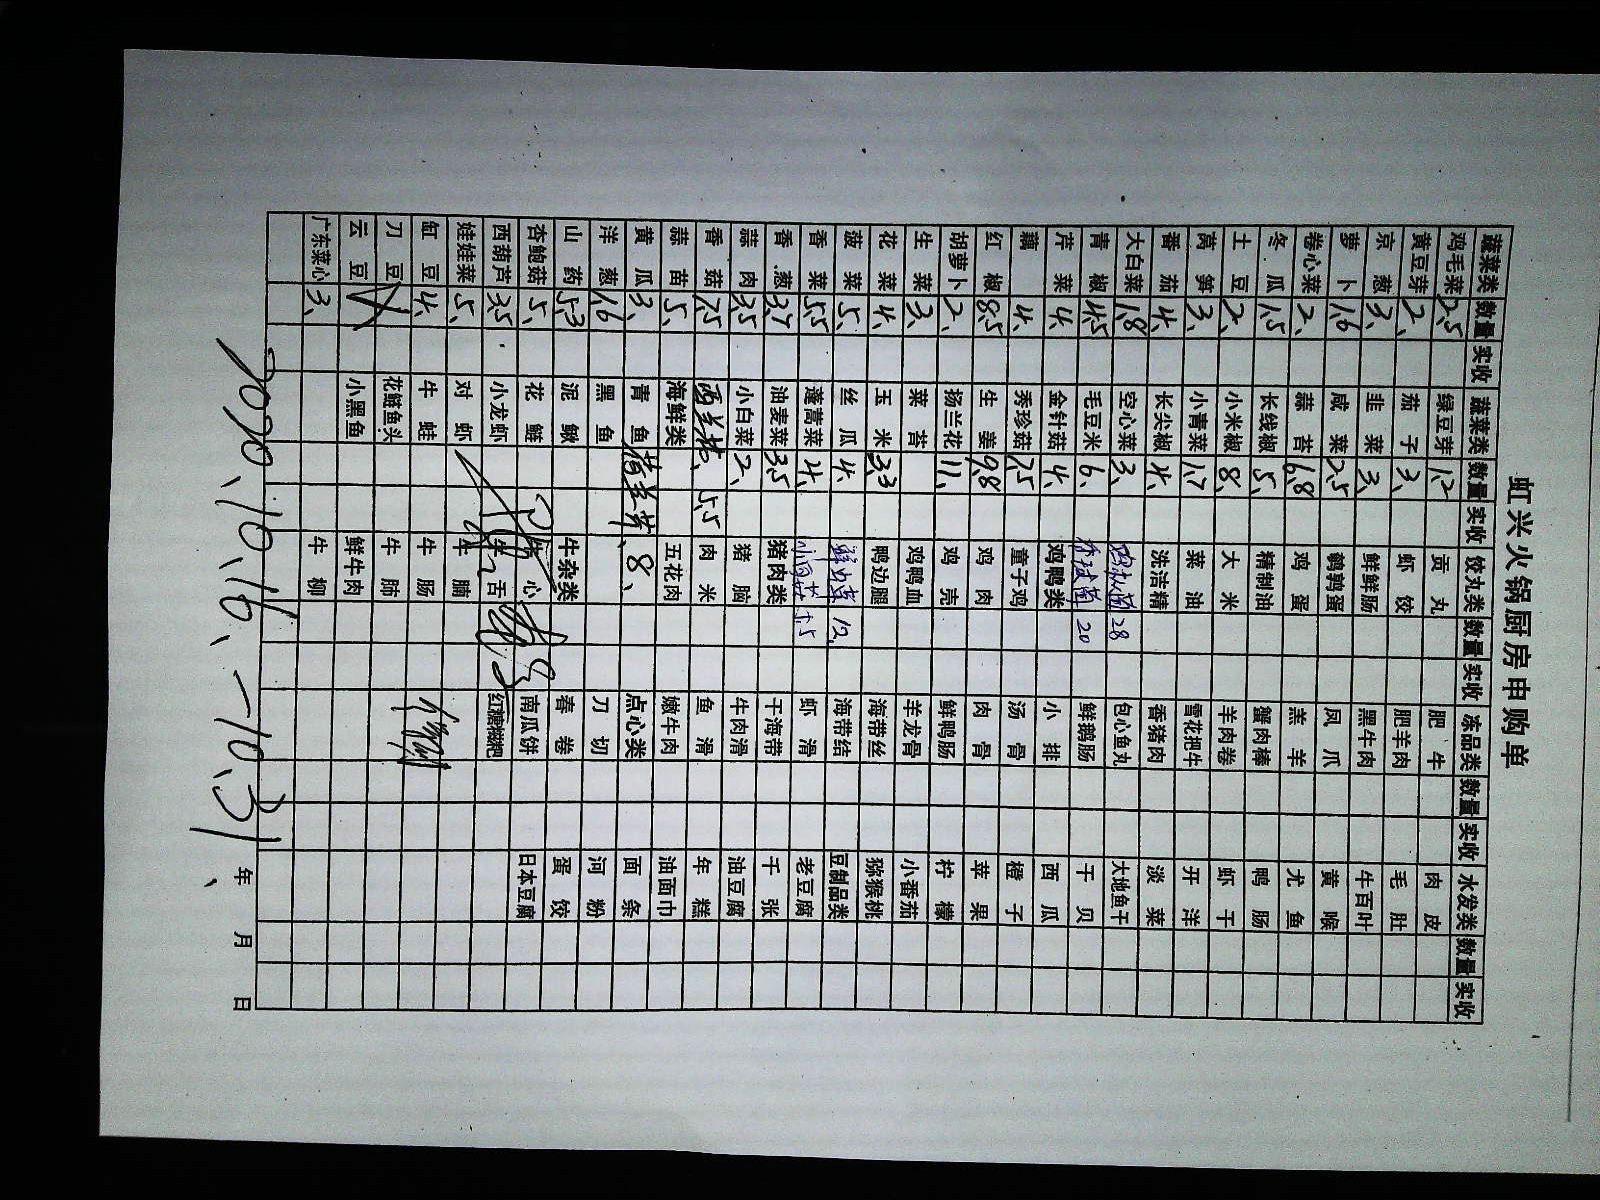 虹兴火锅厨房申购单
蔬菜类 数量 实收 蔬菜类 数量 实收 饺丸类 数量 实收 冻品类 数量 实收 水发类 数量 实收
鸡毛菜 2.5 绿豆芽 1.2 贡丸 肥牛 肉皮
黄豆芽 2、 茄子 3、 虾饺 肥羊肉 毛肚
京葱 3、 韭菜 3、 鲜鲜肠 黑牛肉 牛百叶
萝卜 1.6 咸菜 2.5 鹌鹑蛋 凤爪 黄喉
卷心菜 2、 蒜苔 6.8 鸡蛋 羔羊 尤鱼
冬瓜 1.5 长线椒 5、 精制油 蟹肉棒 鸭肠
土豆 2、 小米椒 8、 大米 羊肉卷 虾干
莴笋 3、 小青菜 1.7 菜油 雪花把牛 开洋
番茄 4、 长尖椒 4、 洗洁精 香猪肉 淡菜
大白菜 1.8 空心菜 3、 28 包心鱼丸 大地鱼干
青椒 4.5 毛豆米 6、 20 鲜鹅肠 干贝
芹菜 4、 金针菇 4、 鸡鸭类 小排 西瓜
藕 4、 秀珍菇 7.5 童子鸡 汤骨 橙子
红椒 8.5 生姜 9.8 鸡肉 肉骨 苹果
胡萝卜 2、 扬兰花 11、 鸡壳 鲜鸭肠 柠檬
生菜 3、 菜苔 鸡鸭血 羊龙骨 小番茄
花菜 4、 玉米 3.3 鸭边腿 海带丝 猕猴桃
菠菜 5、 丝瓜 4、 12、 海带结 豆制品类
香菜 5.5 蓬蒿菜 4、 虾滑 老豆腐
香葱 3.7 油麦菜 3.5 猪肉类 干海带 千张
蒜肉 3.5 小白菜 2、 猪脑 牛肉滑 油豆腐
香菇 7.5 西兰花、5.5 肉米 鱼滑 年糕
蒜苗 5、 海鲜类 五花肉 嫩牛肉 油面巾
黄瓜 3、 青鱼 8、 点心类 面条
洋葱 1.6 黑鱼 刀切 河粉
山药 5.3 泥鳅 牛杂类 春卷 蛋饺
杏鲍菇 5、 花鲢 牛心 南瓜饼 日本豆腐
西葫芦 3.5 小龙虾 牛舌 红糖糍粑
娃娃菜 5、 对虾 牛腩
缸豆 4、 牛蛙 牛肠
刀豆 花鲢鱼头 牛肺
云豆 小黑鱼 鲜牛肉
广东菜心 3、 牛柳
2020.10.16、-10.31、 年 月 日